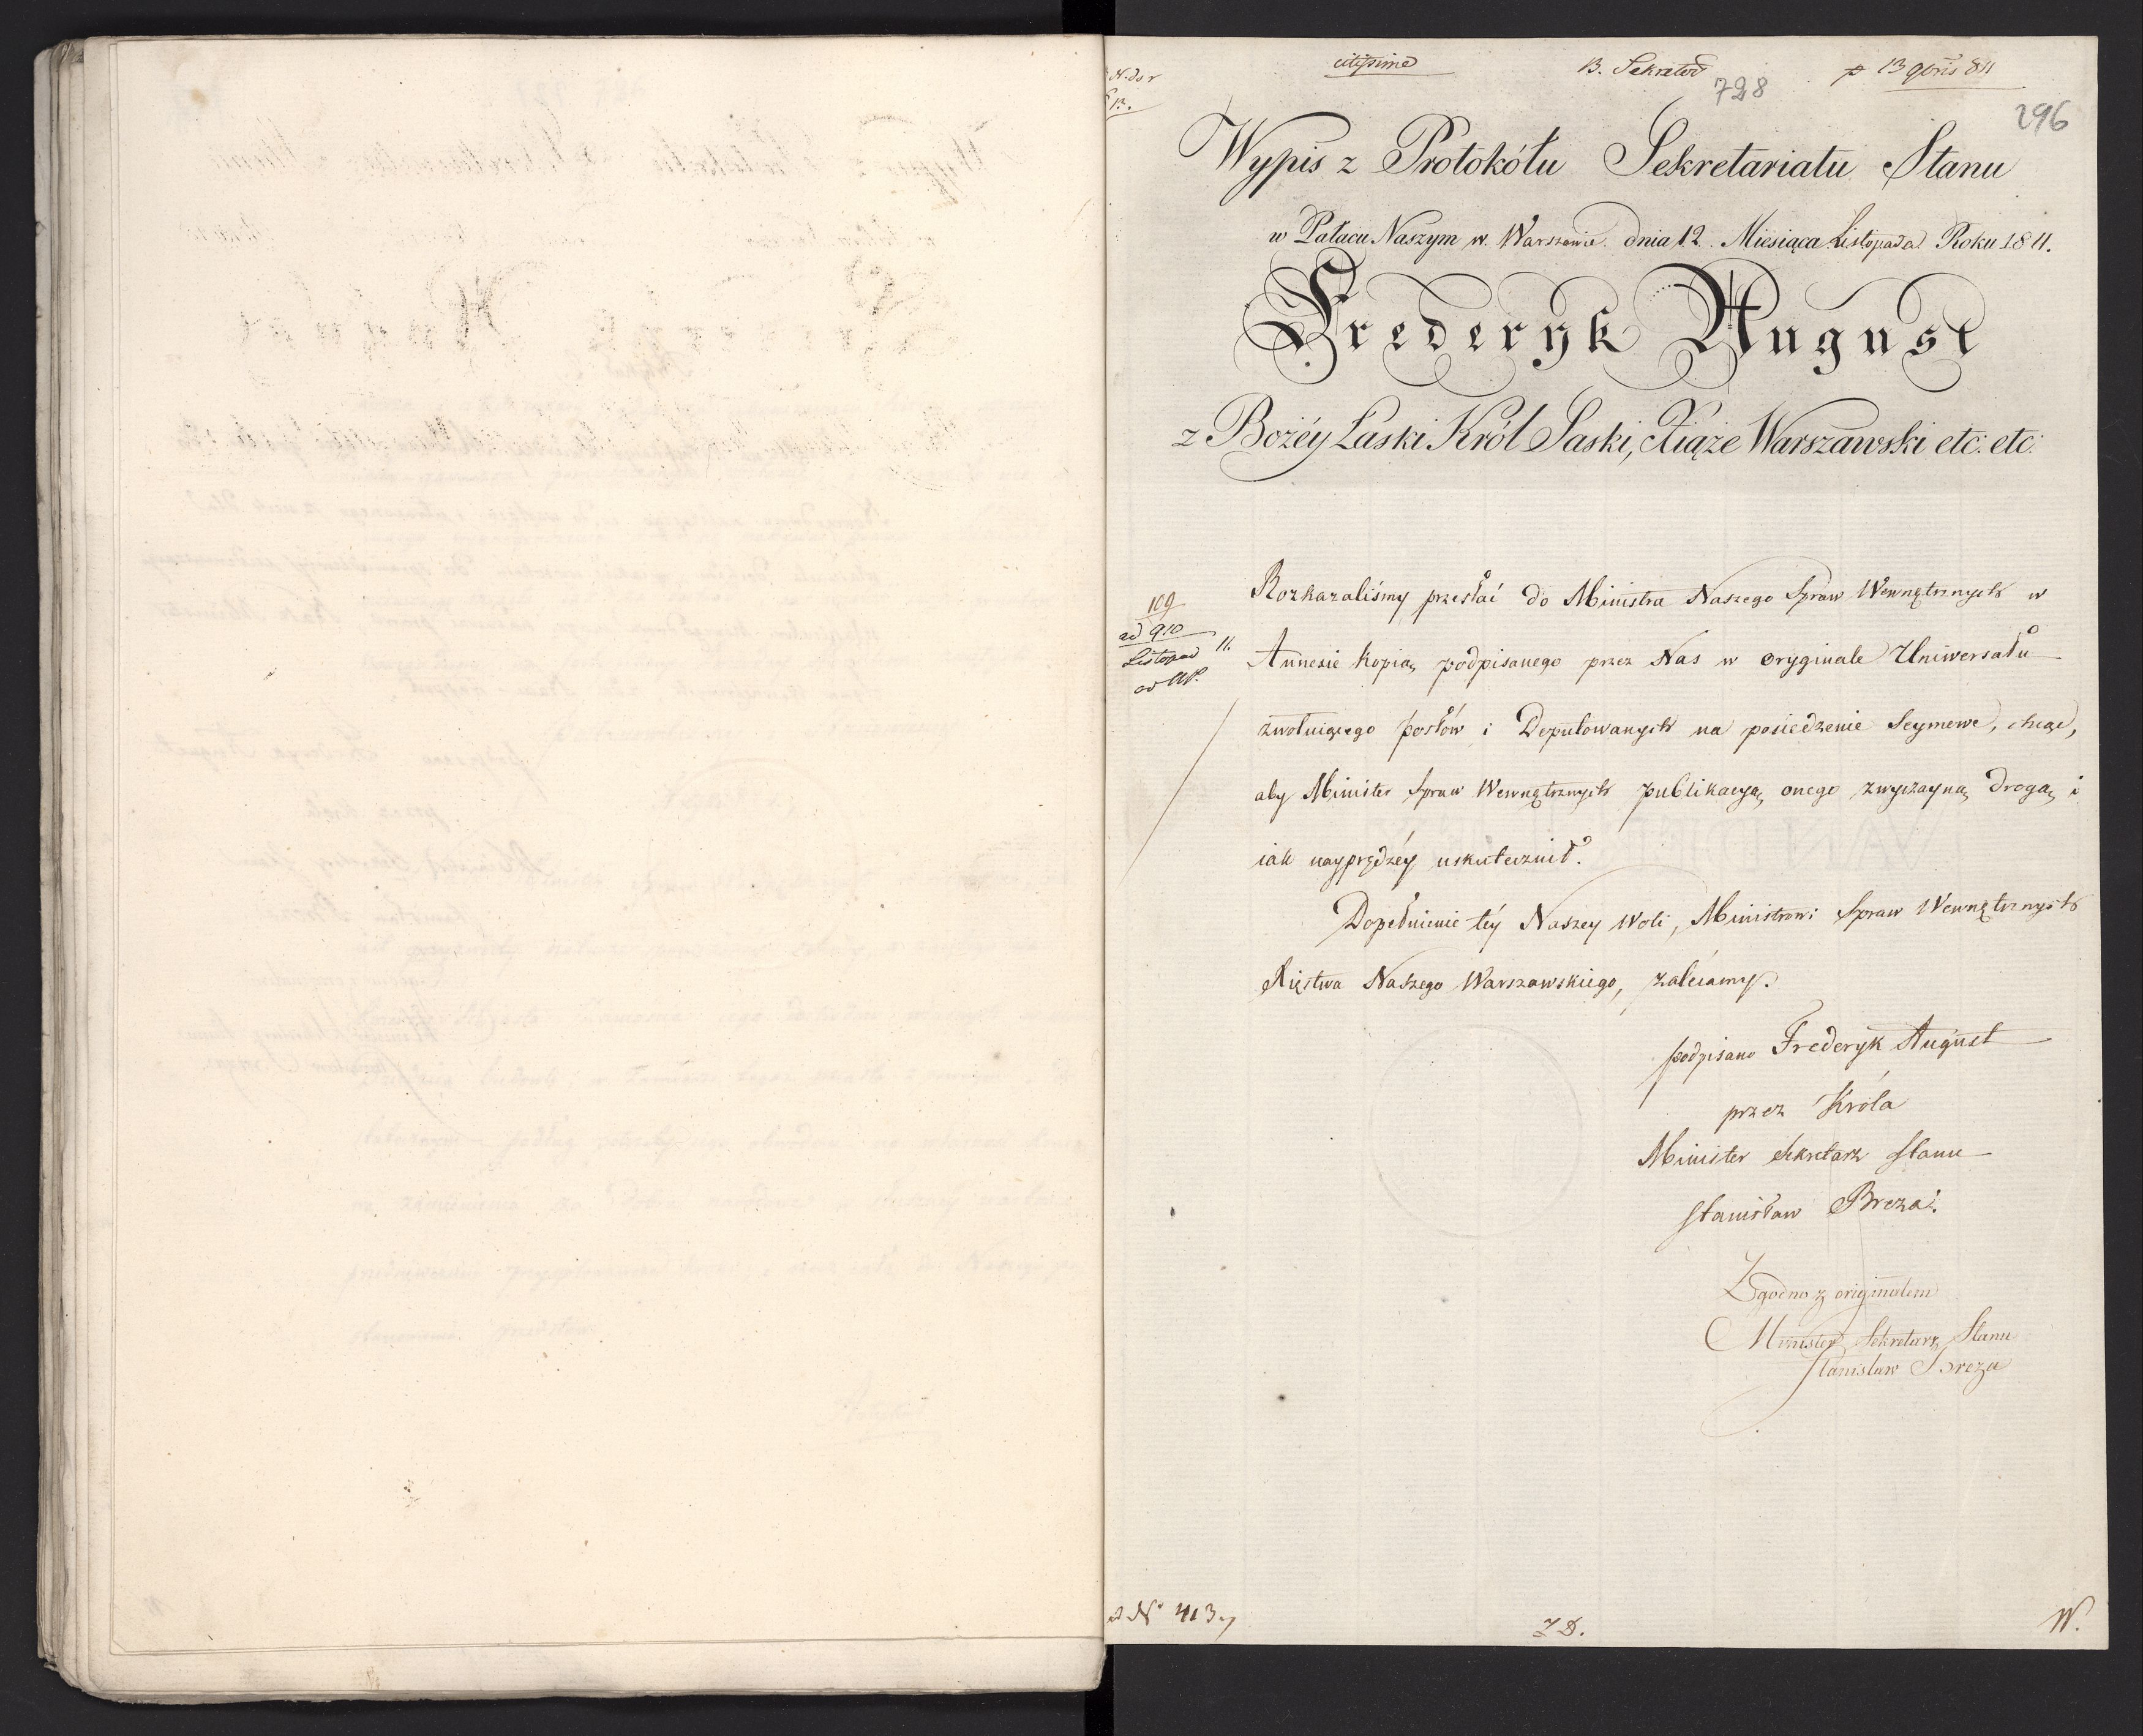 citissime B. Sekretov p 13 9bris 811
728
296
Wypis z Protokółu Sekretariatu Stanu
w Pałacu Naszym w Warszawie dnia 12. Miesiąca Listopada Roku 1811.
Frederyk August
z Bożéy Łaski Król Saski, Xiąże Warszawski etc: etc:
109
ad 910
Listopad 11.
Rozkazaliśmy przesłać do Ministra Naszego Spraw Wewnętrznych w
Annexie kopią podpisanego przez Nas w oryginale Uniwersału
zwołuiącego posłów i Deputowanych na posiedzenie Seymowe, chcąc,
aby Minister Spraw Wewnętrznych publikacyą onego zwyczayną drogą i
iak nayprędzéy uskutecznił.
Dopełnienie téy Naszey Woli, Ministrowi Spraw Wewnętrznych
Xięstwa Naszego Warszawskiego, zalecamy.
podpisano Frederyk August
przez Króla
Minister Sekretarz Stanu
Stanisław Breza.
Zgodno z originałem
Minister Sekretarz Stanu
Stanisław Breza
No 413
W.